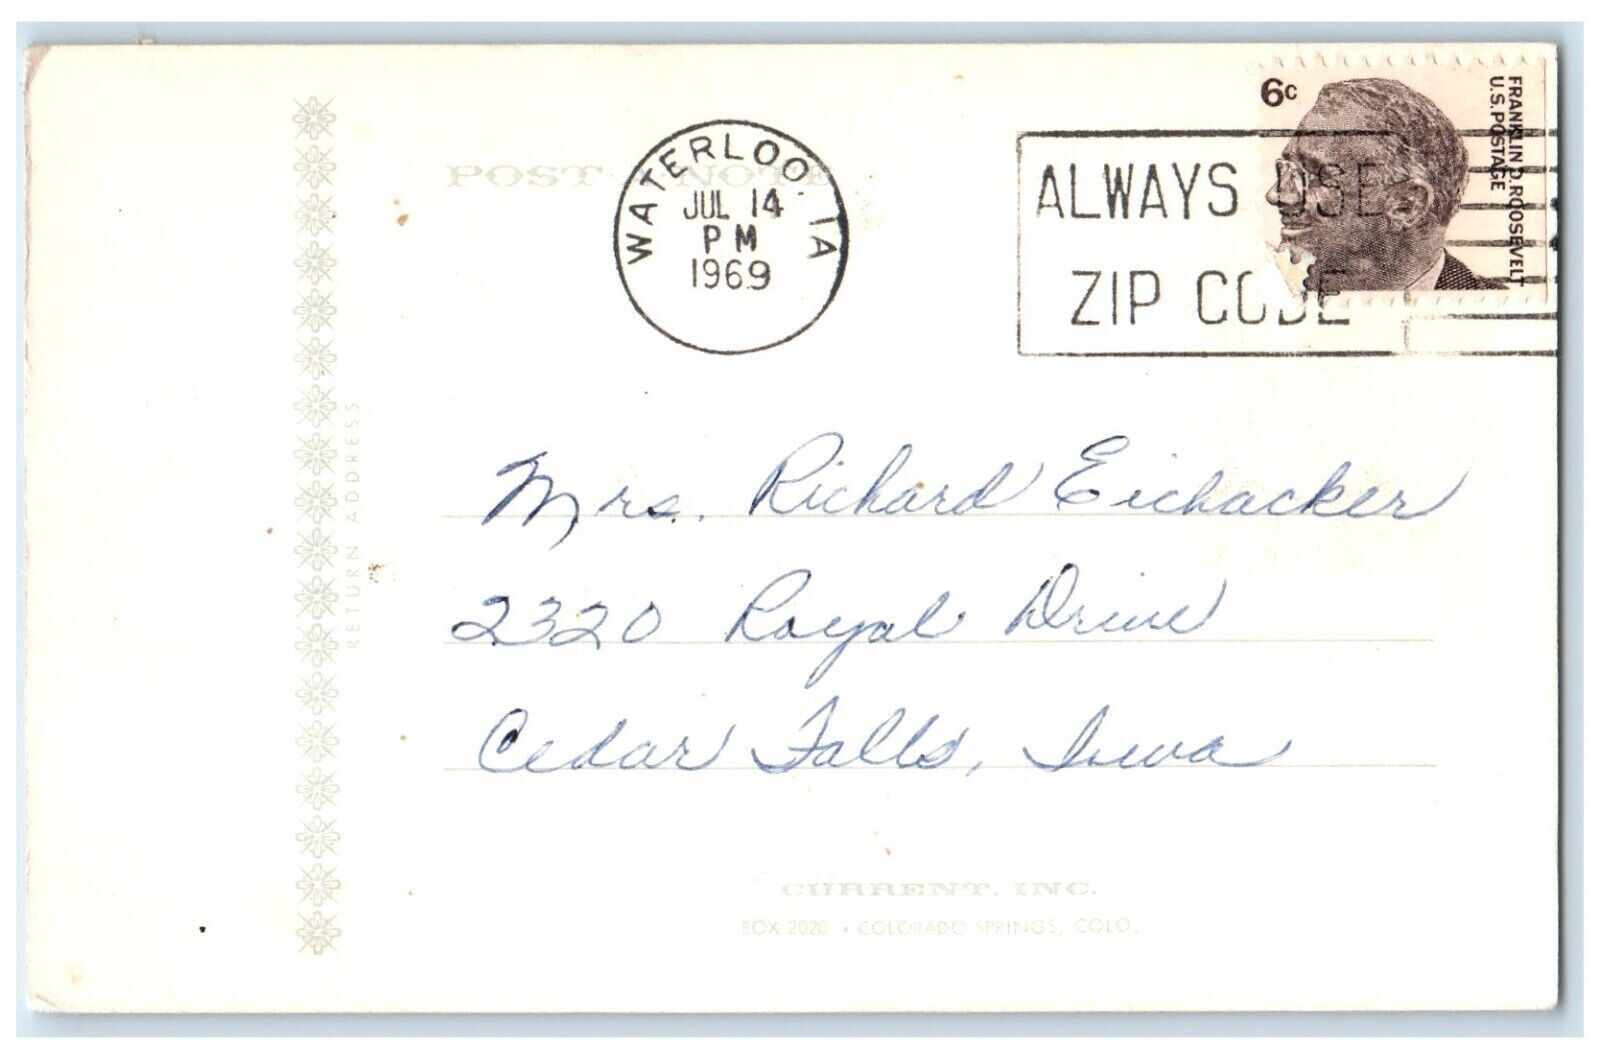 POST NOTE
WATERLOO, IA
JUL 14
PM
1969
ALWAYS USE
ZIP CODE
6c
FRANKLIN D. ROOSEVELT
U.S. POSTAGE
RETURN ADDRESS
Mrs. Richard Eichacker
2320 Royal Drive
Cedar Falls, Iowa
CURRENT, INC.
BOX 2020 • COLORADO SPRINGS, COLO.